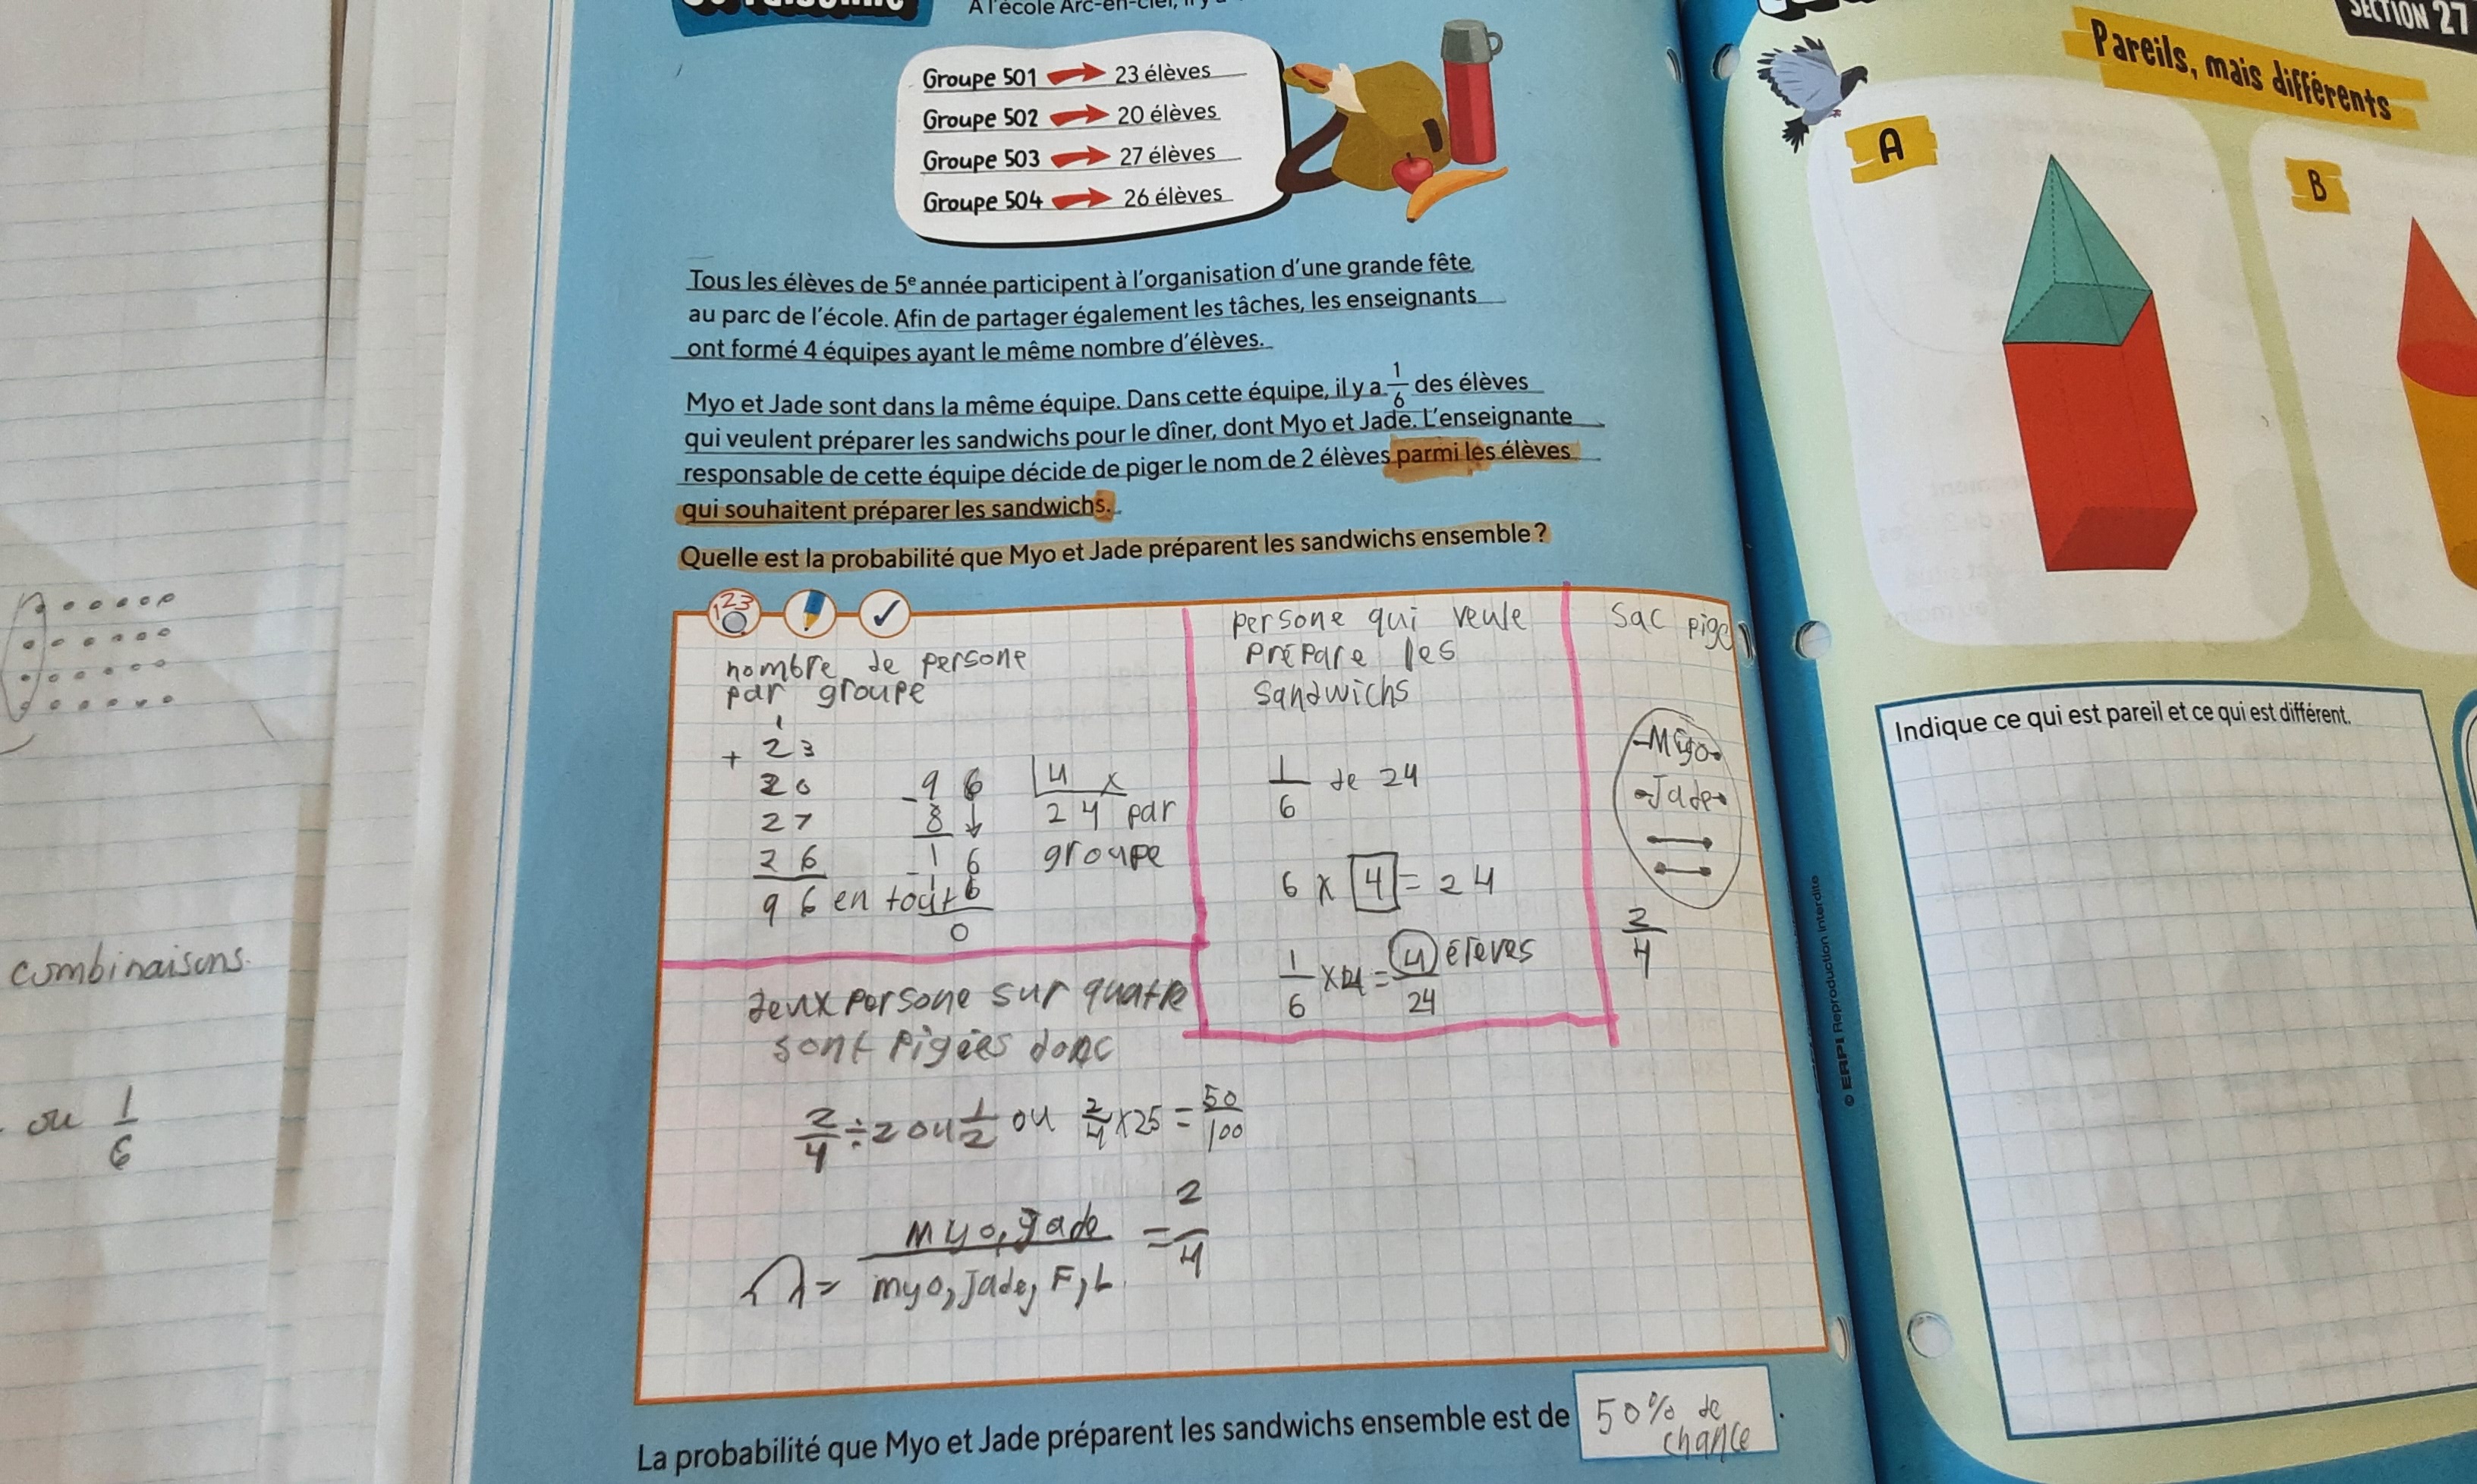 combinaisons.
ou 1/6
À l'école Arc-en-ciel, il y a
Groupe 501 → 23 élèves
Groupe 502 → 20 élèves
Groupe 503 → 27 élèves
Groupe 504 → 26 élèves
Tous les élèves de 5e année participent à l'organisation d'une grande fête
au parc de l'école. Afin de partager également les tâches, les enseignants
ont formé 4 équipes ayant le même nombre d'élèves.
Myo et Jade sont dans la même équipe. Dans cette équipe, il y a 1/6 des élèves
qui veulent préparer les sandwichs pour le dîner, dont Myo et Jade. L'enseignante
responsable de cette équipe décide de piger le nom de 2 élèves parmi les élèves
qui souhaitent préparer les sandwichs.
Quelle est la probabilité que Myo et Jade préparent les sandwichs ensemble ?
123
nombre de persone
par groupe
1
+ 23
20
27
26
96 en tout
- 96 | 4
8 24 par
16 groupe
- 16
0
persone qui veule
prépare les
sandwichs
1/6 de 24
6 x 4 = 24
1/6 x 4 = 4/24 élèves
sac pige
Myo
Jade
2/4
deux persone sur quatre
sont pigées donc
2/4 ÷ 2 ou 1/2 ou 2/4 x 25 = 50/100
= myo, Jade / myo, Jade, F, L = 2/4
La probabilité que Myo et Jade préparent les sandwichs ensemble est de 50% de
chance.
© ERPI Reproduction interdite
SECTION 27
Pareils, mais différents
A
B
Indique ce qui est pareil et ce qui est différent.